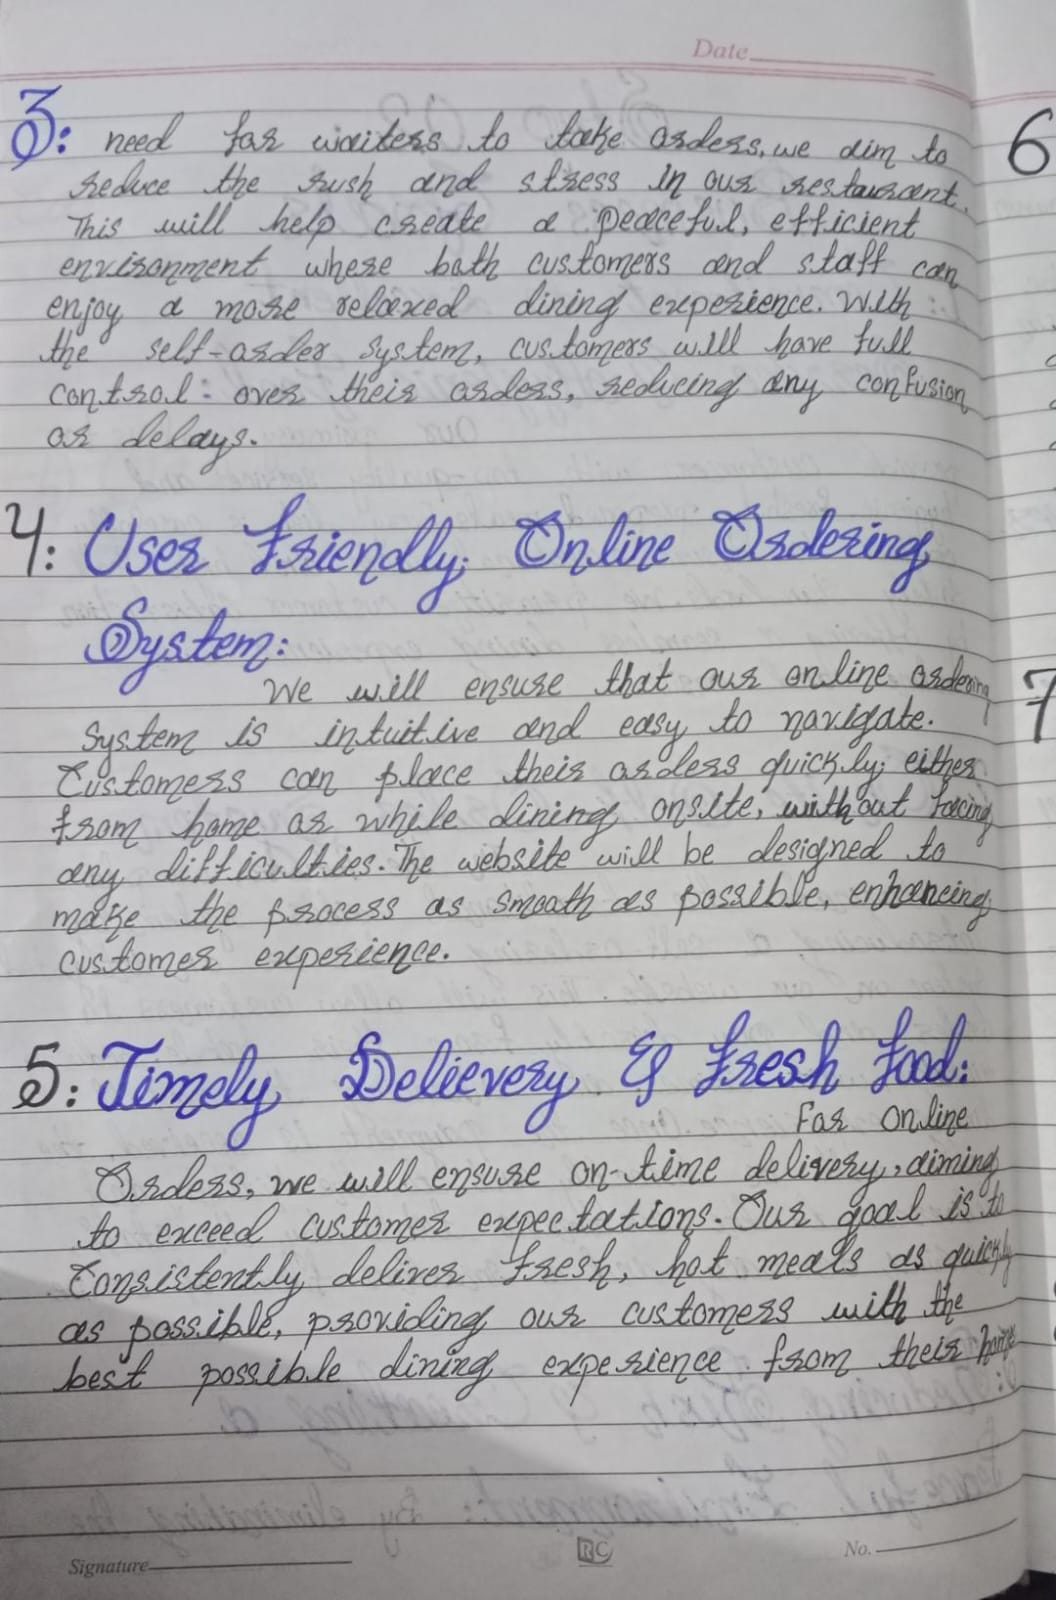 Date
3: need for waiters to take orders, we aim to
reduce the rush and stress in our restaurant.
This will help create a peaceful, efficient
environment where both customers and staff can
enjoy a more relaxed dining experience. With
the self-order system, customers will have full
control: over their orders, reducing any confusion
or delays.
4: User Friendly, Online Ordering
System:
We will ensure that our online ordering
system is intuitive and easy to navigate.
Customers can place their orders quickly, either
from home or while dining onsite, without facing
any difficulties. The website will be designed to
make the process as smooth as possible, enhancing
customer experience.
5: Timely Delievery & Fresh Food:
For online
Orders, we will ensure on-time delivery, aiming
to exceed customer expectations. Our goal is to
Consistently deliver fresh, hot meals as quickly
as possible, providing our customers with the
best possible dining experience from their home
Signature
RC
No.
6
7